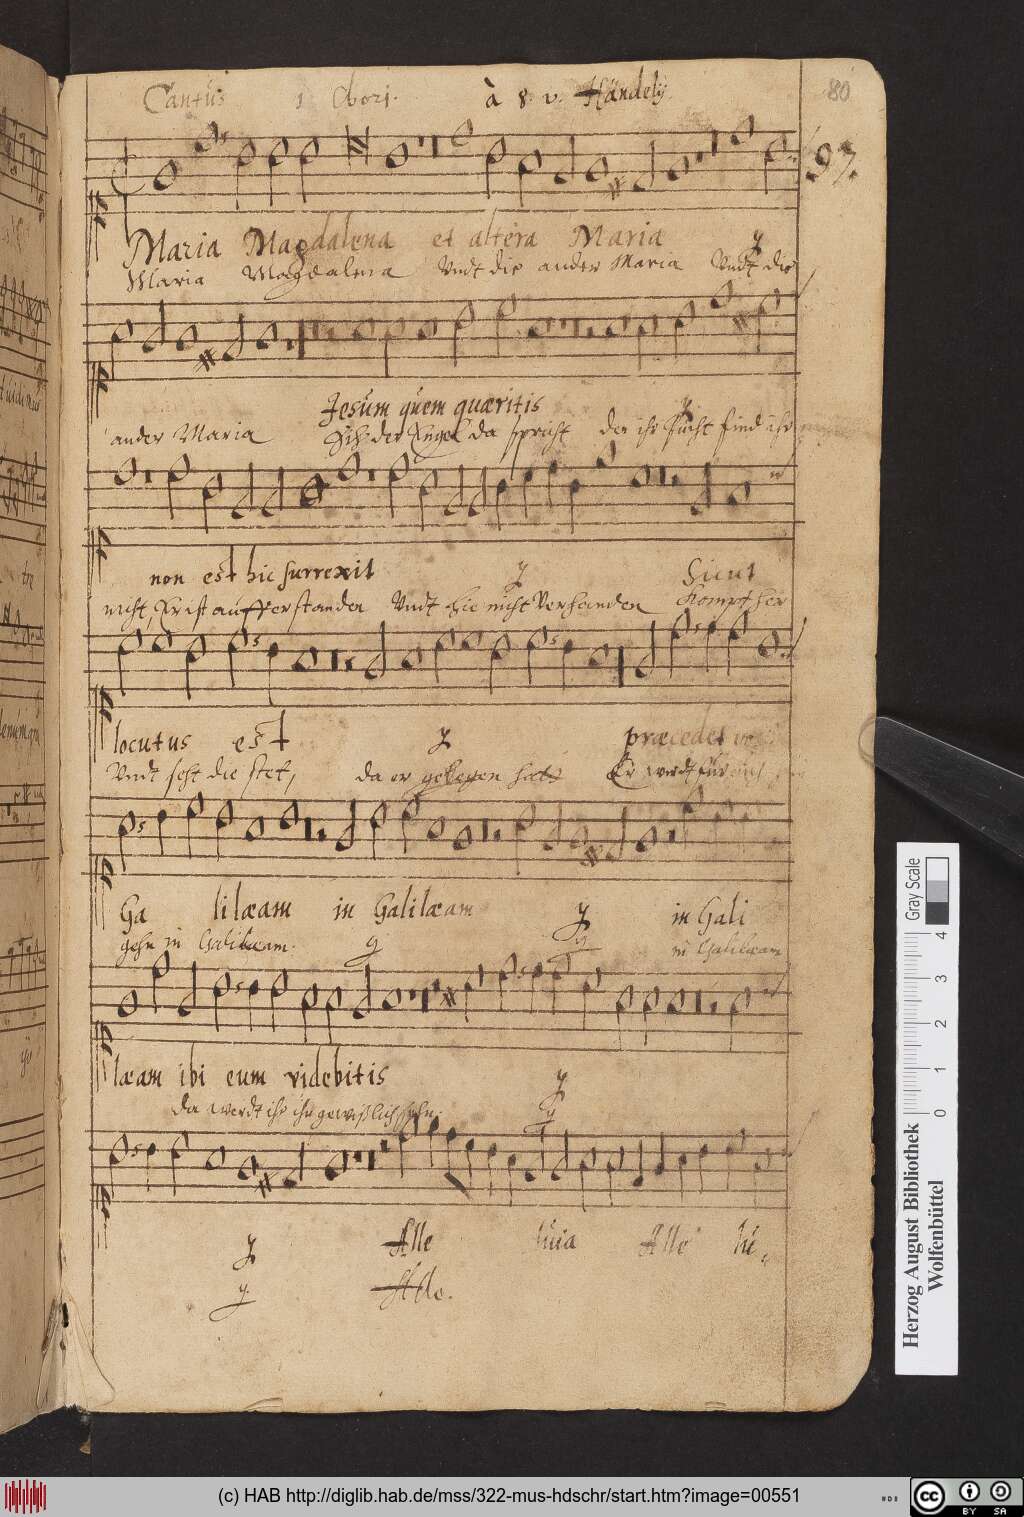 Cantus 1 Chori. à 8. v. Händelij
80
97.
Maria Magdalena et altera Maria ij
Maria Magdalena Undt die ander Maria Undt die
Jesum quem quæritis ij
ander Maria der Engel da spricht den ihr sucht find ihr
non est hic surrexit ij Sicut
nicht, Er ist aufferstanden Undt hie nicht verhanden Kompt her
locutus est ij præcedet vos
Undt seht die stet, da er gelegen hat Er werdt für
Ga lilæam in Galilæam ij in Gali
gehn in Galilæam. ij ij in Galilæam
læam ibi eum videbitis ij
da werdt ihr ihn gewißlich sehn. ij
ij Alle luia Alle lu
ij Alle.
Gray Scale
0 1 2 3 4
Herzog August Bibliothek
Wolfenbüttel
(c) HAB http://diglib.hab.de/mss/322-mus-hdschr/start.htm?image=00551
cc BY SA